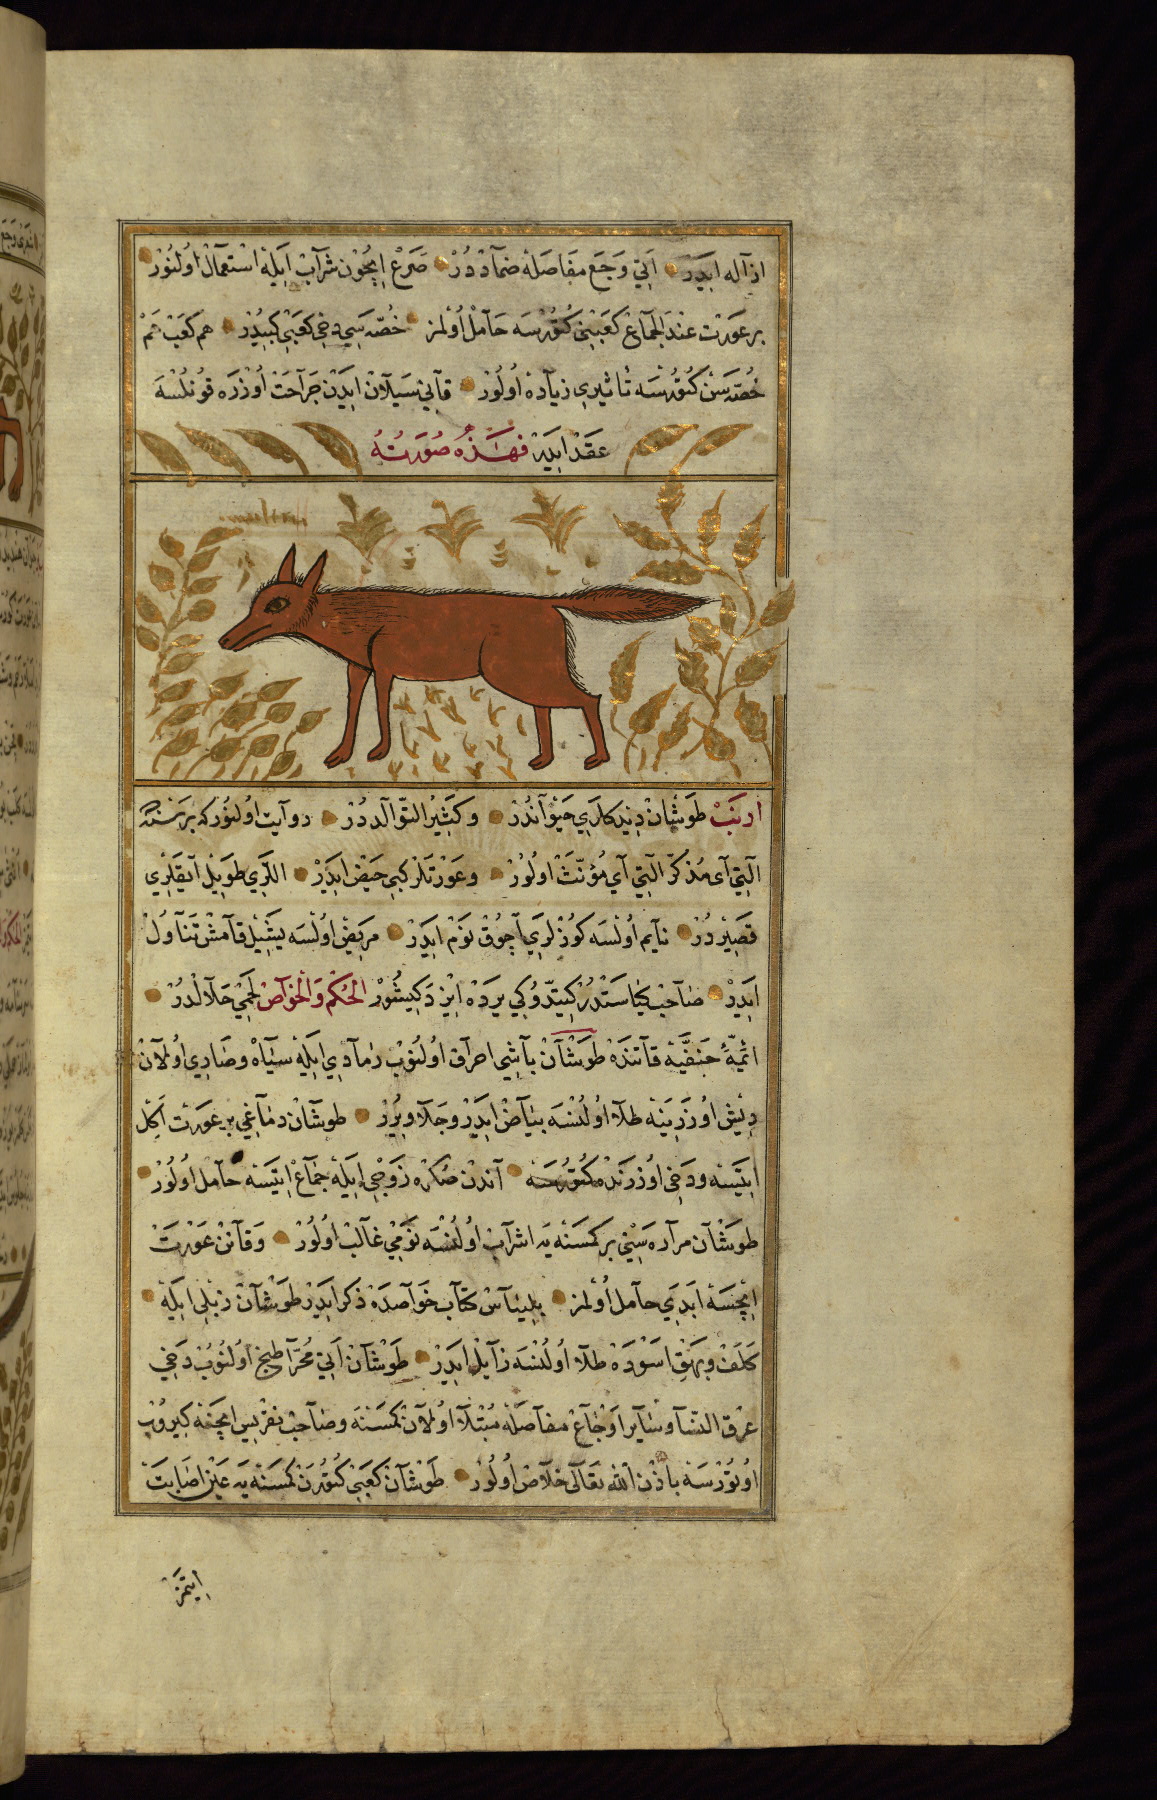 ازاله ايدر اتي وجع مفاصله ضماددر صرع ايچون شراب ايله استعمال اولنور
بر عورت عند الجماع كعبني كتورسه حامل اولمز خصه سي دخي كعبي كبيدر هم كعب هم
خصه سن كتورسه تاثيري زياده اولور قاني سيلان ايدن جراحت اوزره قونلسه
عقد ايدر فهذه صورته
ارنب طوشان ديدكلري حيواندر وكثير التوالددر روايت اولنور كه بر سنه
التي آى مذكر التي آي مؤنث اولور وعورتلر كبي حيض ايدر اللري طويل ايقلري
قصيردر نايم اولسه كوزلري آچوق نوم ايدر مريض اولسه يشيل قامش تناول
ايدر صاحب كياستدر كيتدوكي يرده ايز دكيشور الحكم والخواص لحمي حلالدر
ائمة حنفيه قاتنده طوشان باشي احراق اولنوب رمادي ايله سياه وصاري اولان
ديش اوزرينه طلا اولنسه بياض ايدر وجلا ويرر طوشان دماغي بر عورت اكل
ايتسه ودخي اوزرنده كتورسه آندن صكره زوجي ايله جماع ايتسه حامل اولور
طوشان مراره سيني بر كمسنه يه اشراب اولنسه نومي غالب اولور وقانن عورت
ايچسه ابدي حامل اولمز بليناس كتاب خواصده ذكر ايدر طوشان زبلي ايله
كلف وبهق اسوده طلا اولنسه زايل ايدر طوشان اتي محرا طبخ اولنوب دخي
عرق النسا وساير اوجاع مفاصله مبتلا اولان كمسنه وصاحب نقريس ايچنه كيروب
اوتورسه باذن الله تعالى خلاص اولور طوشان كعبن كتورن كمسنه يه عين اصابت
ايتمز